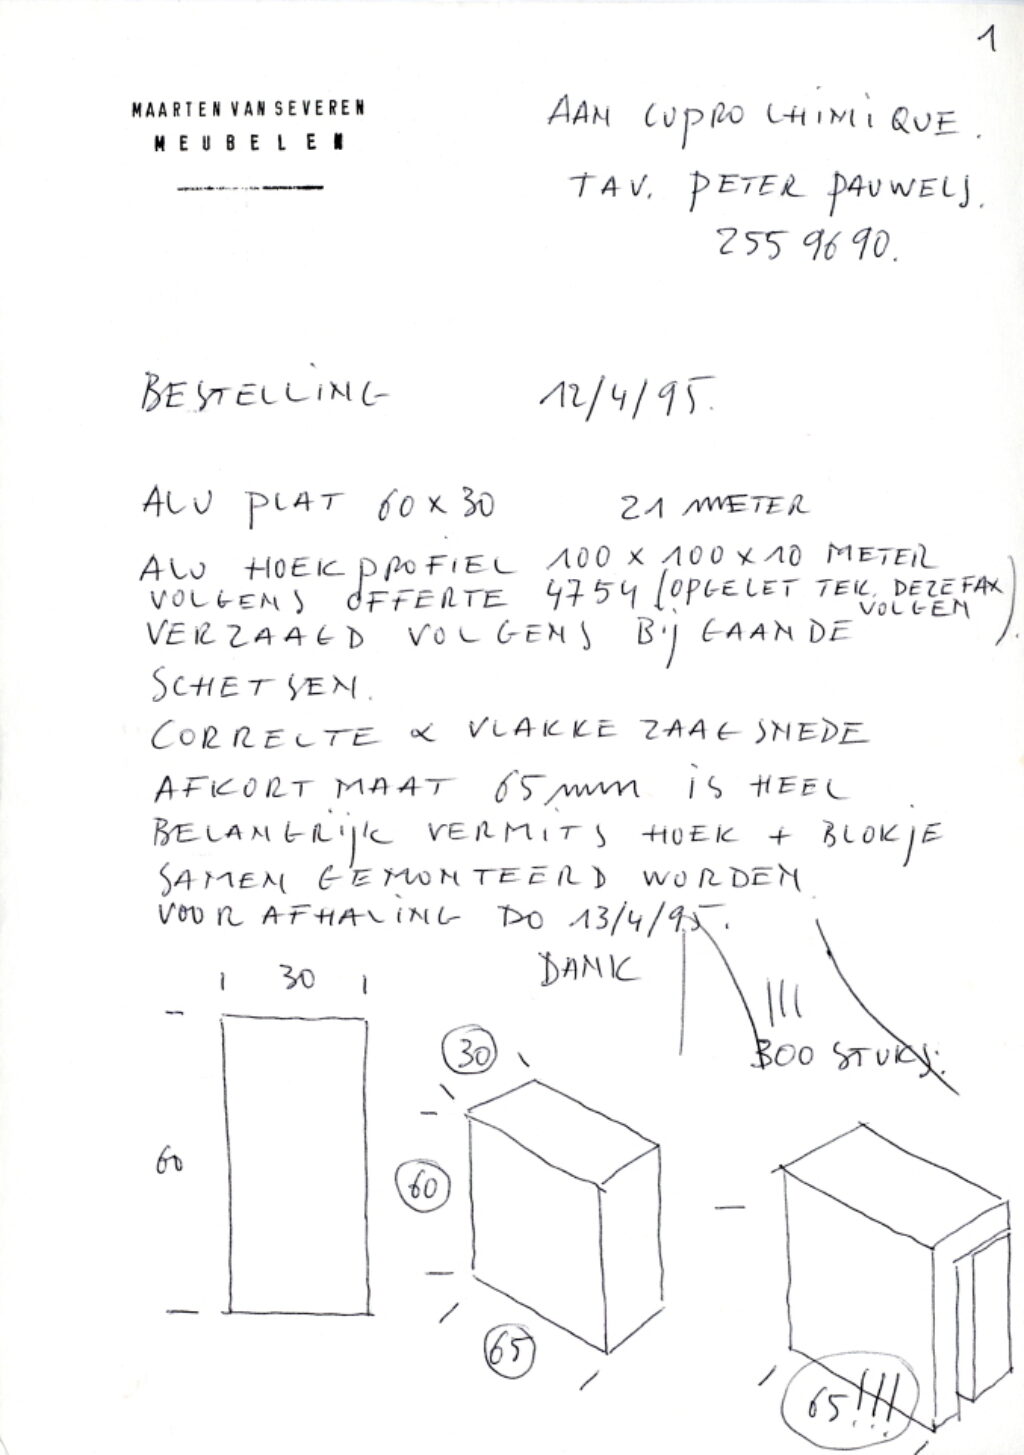 1
MAARTEN VAN SEVEREN
MEUBELEN
AAN CUPRO CHIMIQUE.
TAV. PETER PAUWELS.
255 96 90.
BESTELLING 12/4/95.
ALU PLAT 60 x 30 21 METER
ALU HOEKPROFIEL 100 x 100 x 10 METER
VOLGENS OFFERTE 4754 (OPGELET TEK. DEZE FAX
VOLGEN)
VERZAAGD VOLGENS BIJGAANDE
SCHETSEN.
CORRECTE & VLAKKE ZAAGSNEDE
AFKORTMAAT 65 mm IS HEEL
BELANGRIJK VERMITS HOEK + BLOKJE
SAMEN GEMONTEERD WORDEN.
VOOR AFHALING DO 13/4/95.
DANK
30
!!!
300 STUKS.
30
60
60
65
65!!!